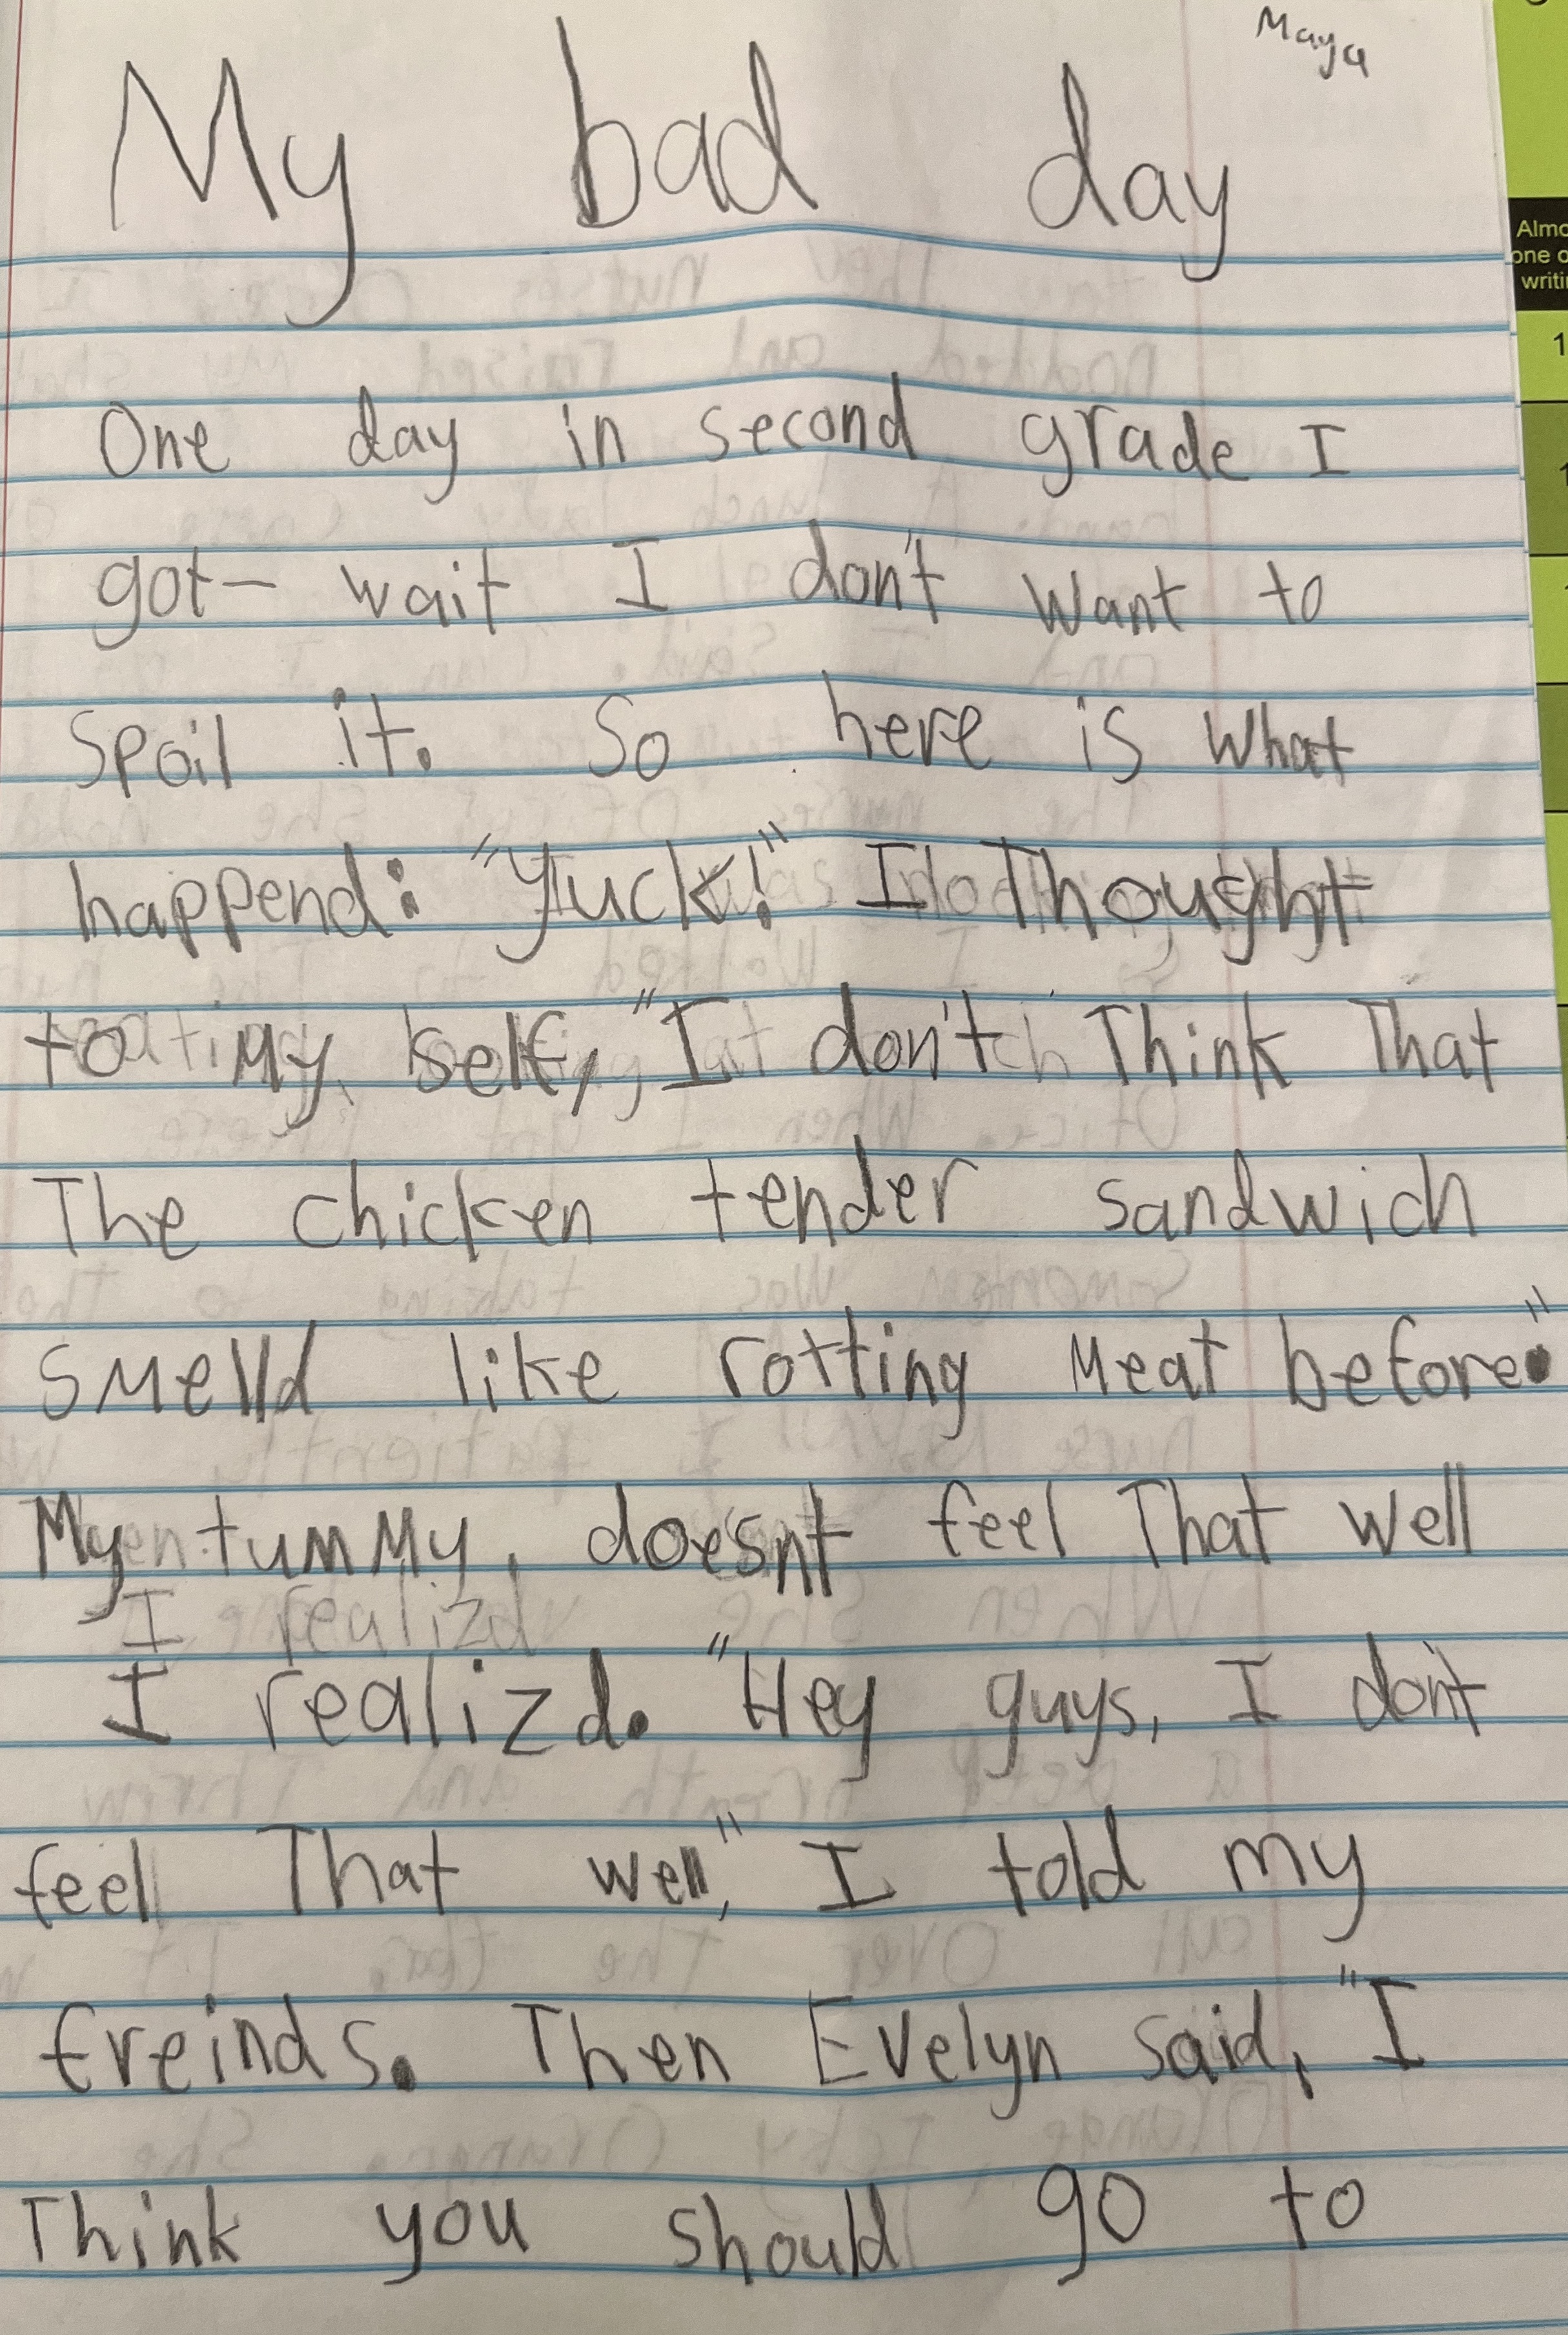 Maya
My bad day
One day in second grade I
got— wait I don't want to
spoil it. So here is what
happend: "Yuck!" I Thought
to My self, "I don't Think That
The chicken tender sandwich
smelld like rotting Meat before."
My tummy, doesnt feel That well
I realizd
I realizd. "Hey guys, I don't
feel That well," I told my
freinds. Then Evelyn said, "I
Think you should go to
Almo
one o
writi
1
1